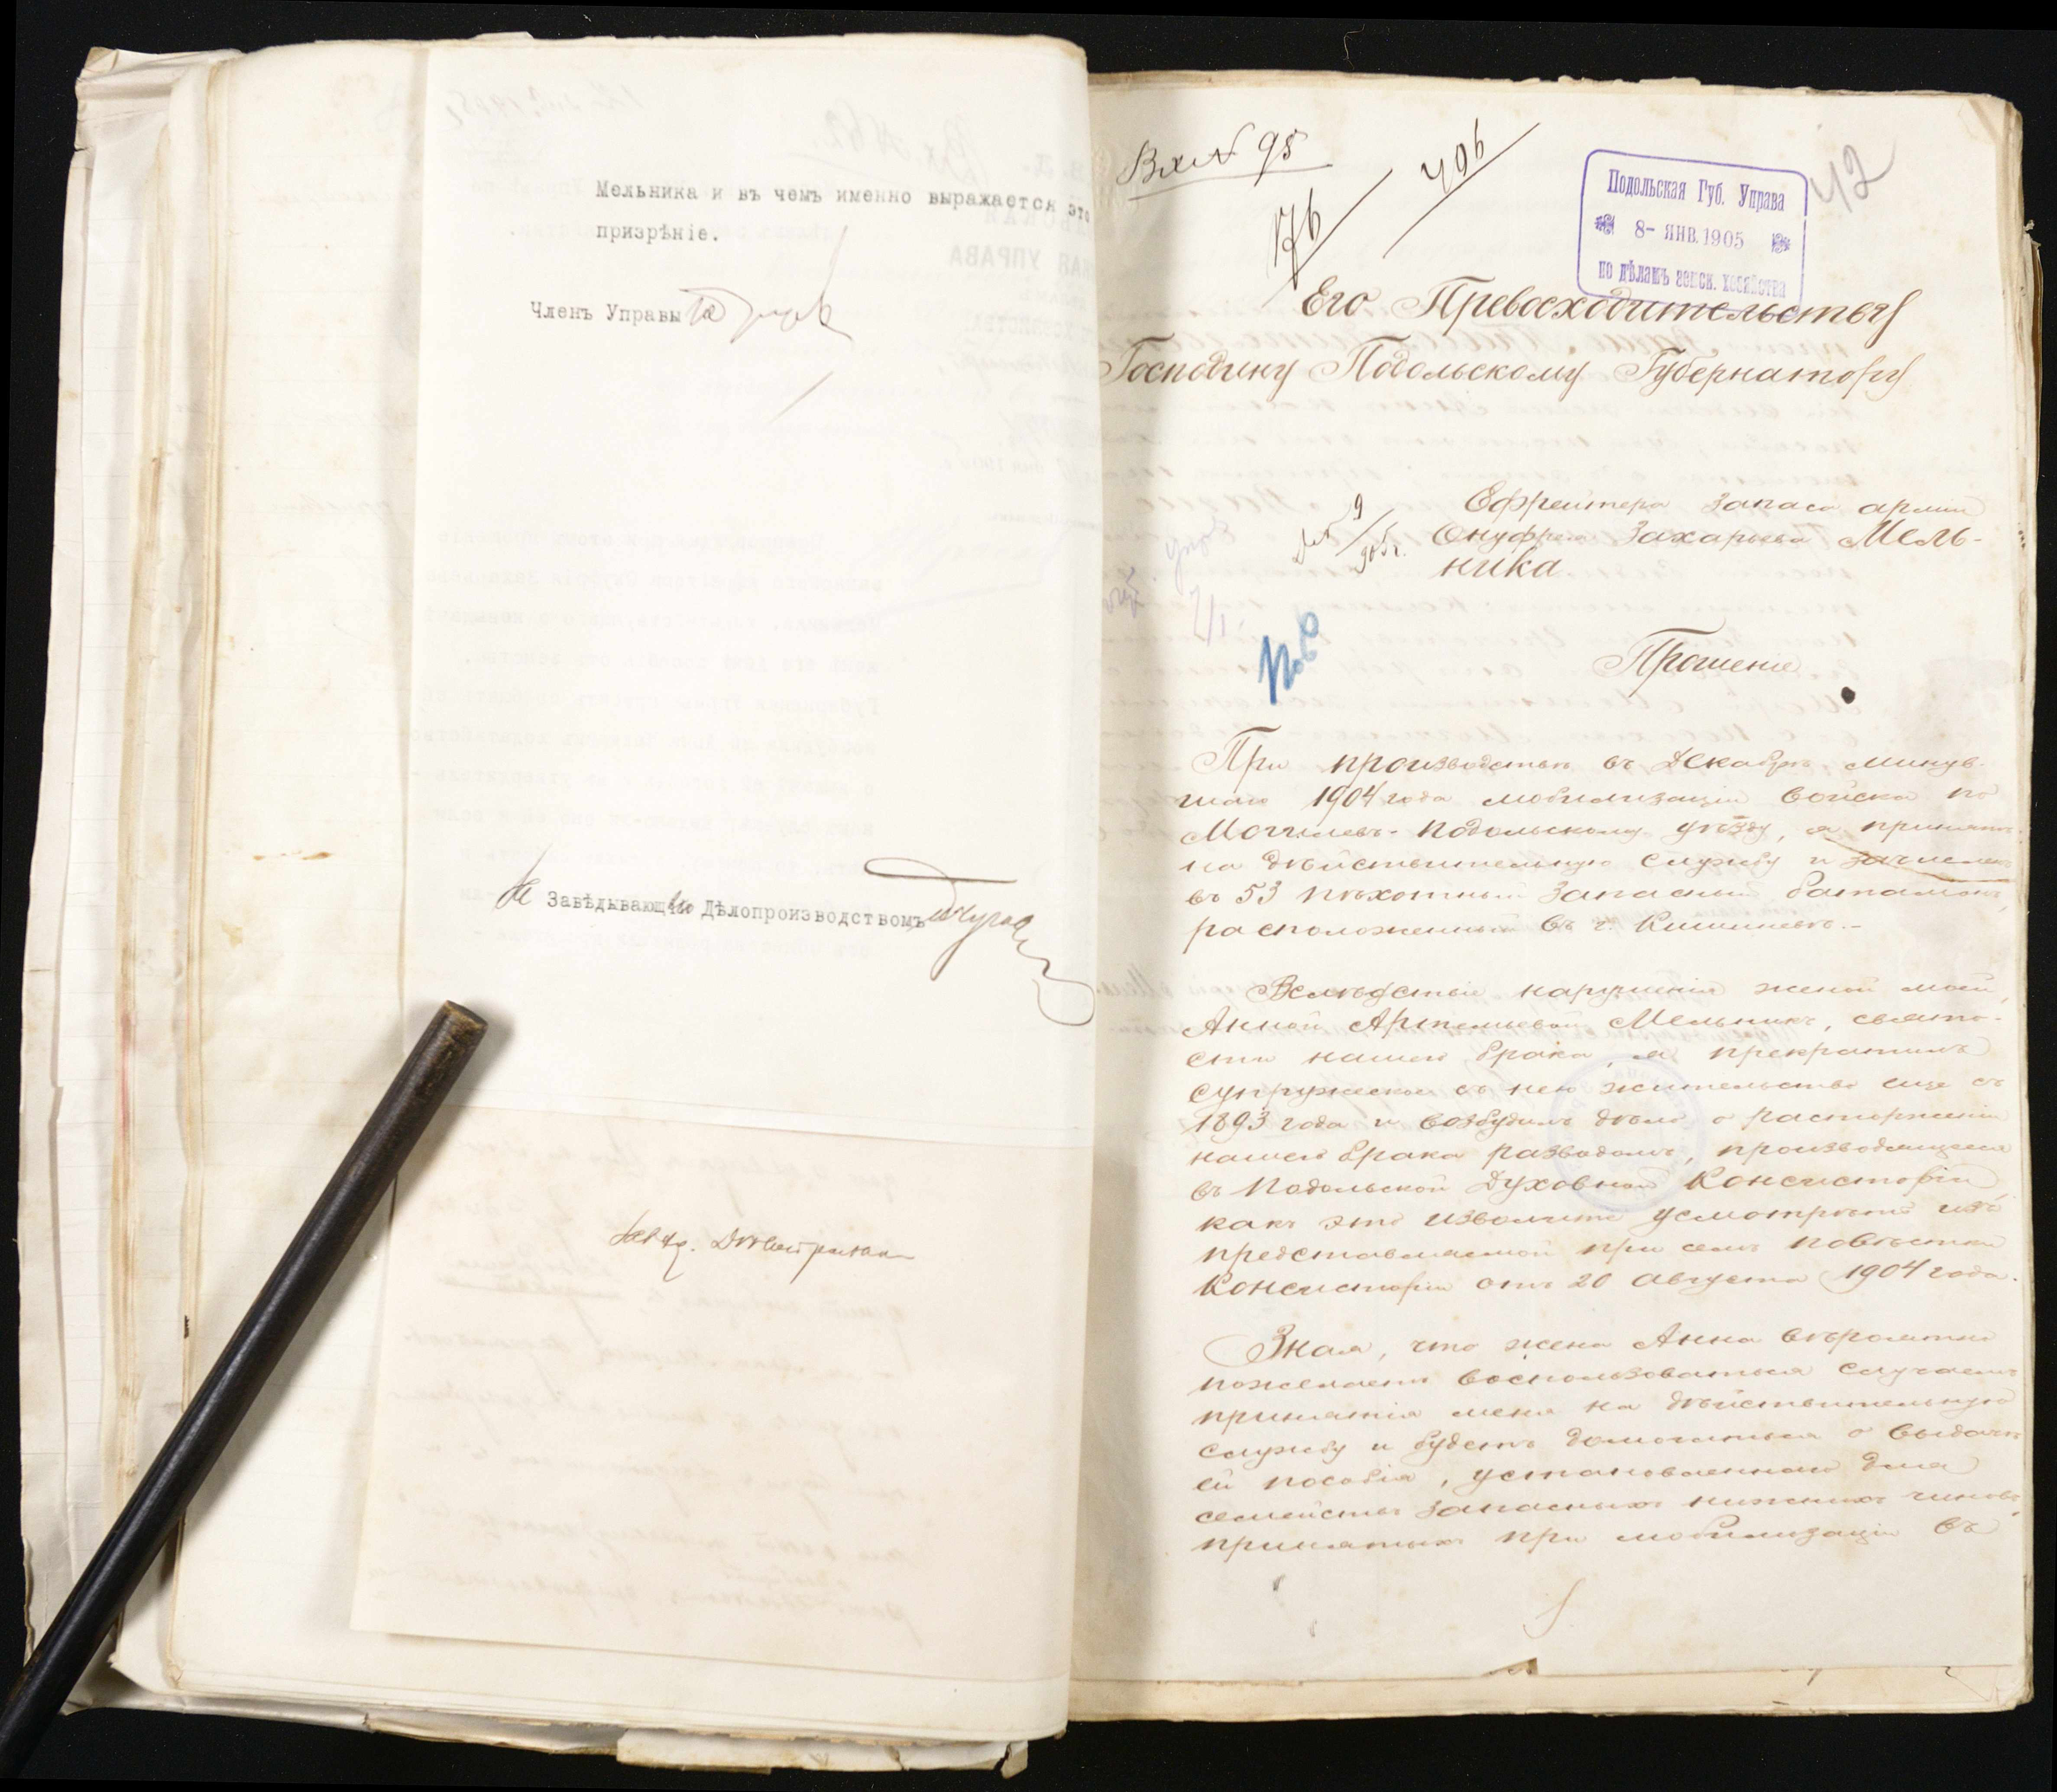 Мельника и въ чемъ именно выражается это
призрѣніе.
Членъ Управы
За Завѣдывающаго Дѣлопроизводствомъ
Вх № 95
176
496
42
Подольская Губ. Управа
8- ЯНВ. 1905
по дѣламъ земск. хозяйства
Его Превосходительству
Господину Подольскому Губернатору
Ефрейтера запаса арміи
Онуфрія Захарьева Мель-
ника
9
905 г.
Прошеніе
При производствѣ въ Декабрѣ минув-
шаго 1904 года мобилизаціи войска по
Могилевъ-Подольскому уѣзду, я принятъ
на дѣйствительную службу и зачисленъ
въ 53 пѣхотный запасный баталіонъ,
расположенный въ г. Кишиневѣ.-
Вслѣдствіе нарушенія женой моей,
Анной Артемьевой Мельникъ, свято-
сти нашего брака, я прекратилъ
супружеское съ нею жительство еще съ
1893 года и возбудилъ дѣло о расторженіи
нашего брака разводомъ, производящееся
въ Подольской Духовной Консисторіи
какъ это изволите усмотрѣть изъ
представляемой при семъ повѣстки
Консисторіи отъ 20 августа 1904 года.
Зная, что жена Анна вѣроятно
пожелаетъ воспользоваться случаемъ
принятія меня на дѣйствительную
службу и будетъ домогаться о выдачѣ
ей пособія, установленнаго для
семействъ запасныхъ нижнихъ чиновъ,
принятыхъ при мобилизаціи въ